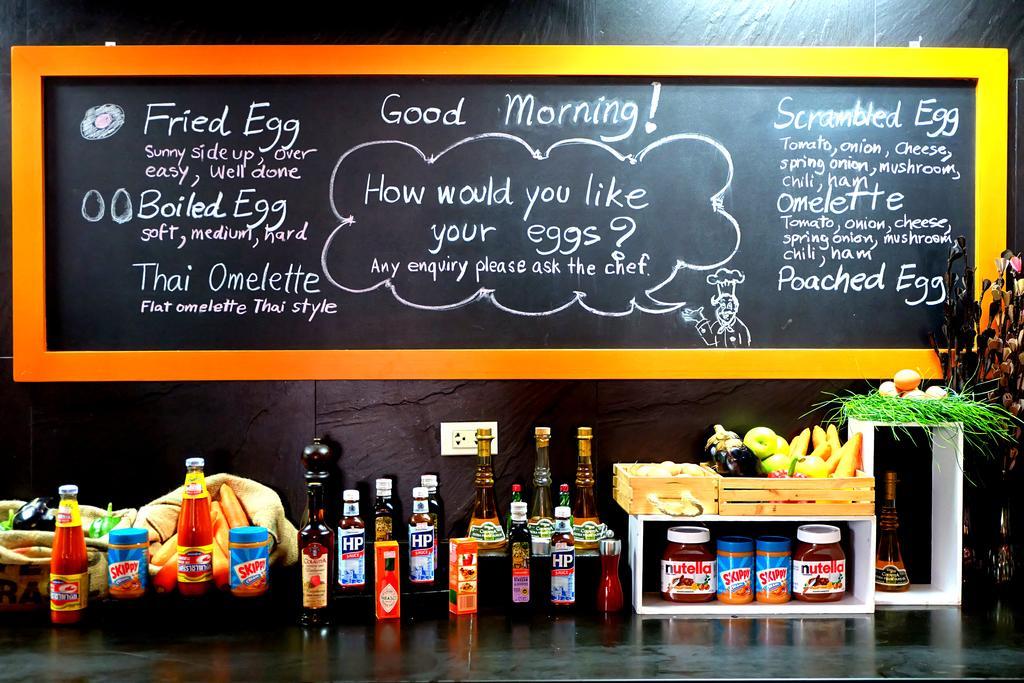 Good Morning!
Fried Egg
Sunny side up, over
easy, Well done
Boiled Egg
soft, medium, hard
Thai Omelette
Flat omelette Thai style
How would you like
your eggs?
Any enquiry please ask the chef.
Scrambled Egg
Tomato, onion, Cheese,
spring onion, mushroom,
chili, ham
Omelette
Tomato, onion, cheese,
spring onion, mushroom,
chili, ham
Poached Egg
SKIPPY
SKIPPY
HP
SAUCE
HP
SAUCE
TABASCO
HP
nutella
SKIPPY
SKIPPY
nutella